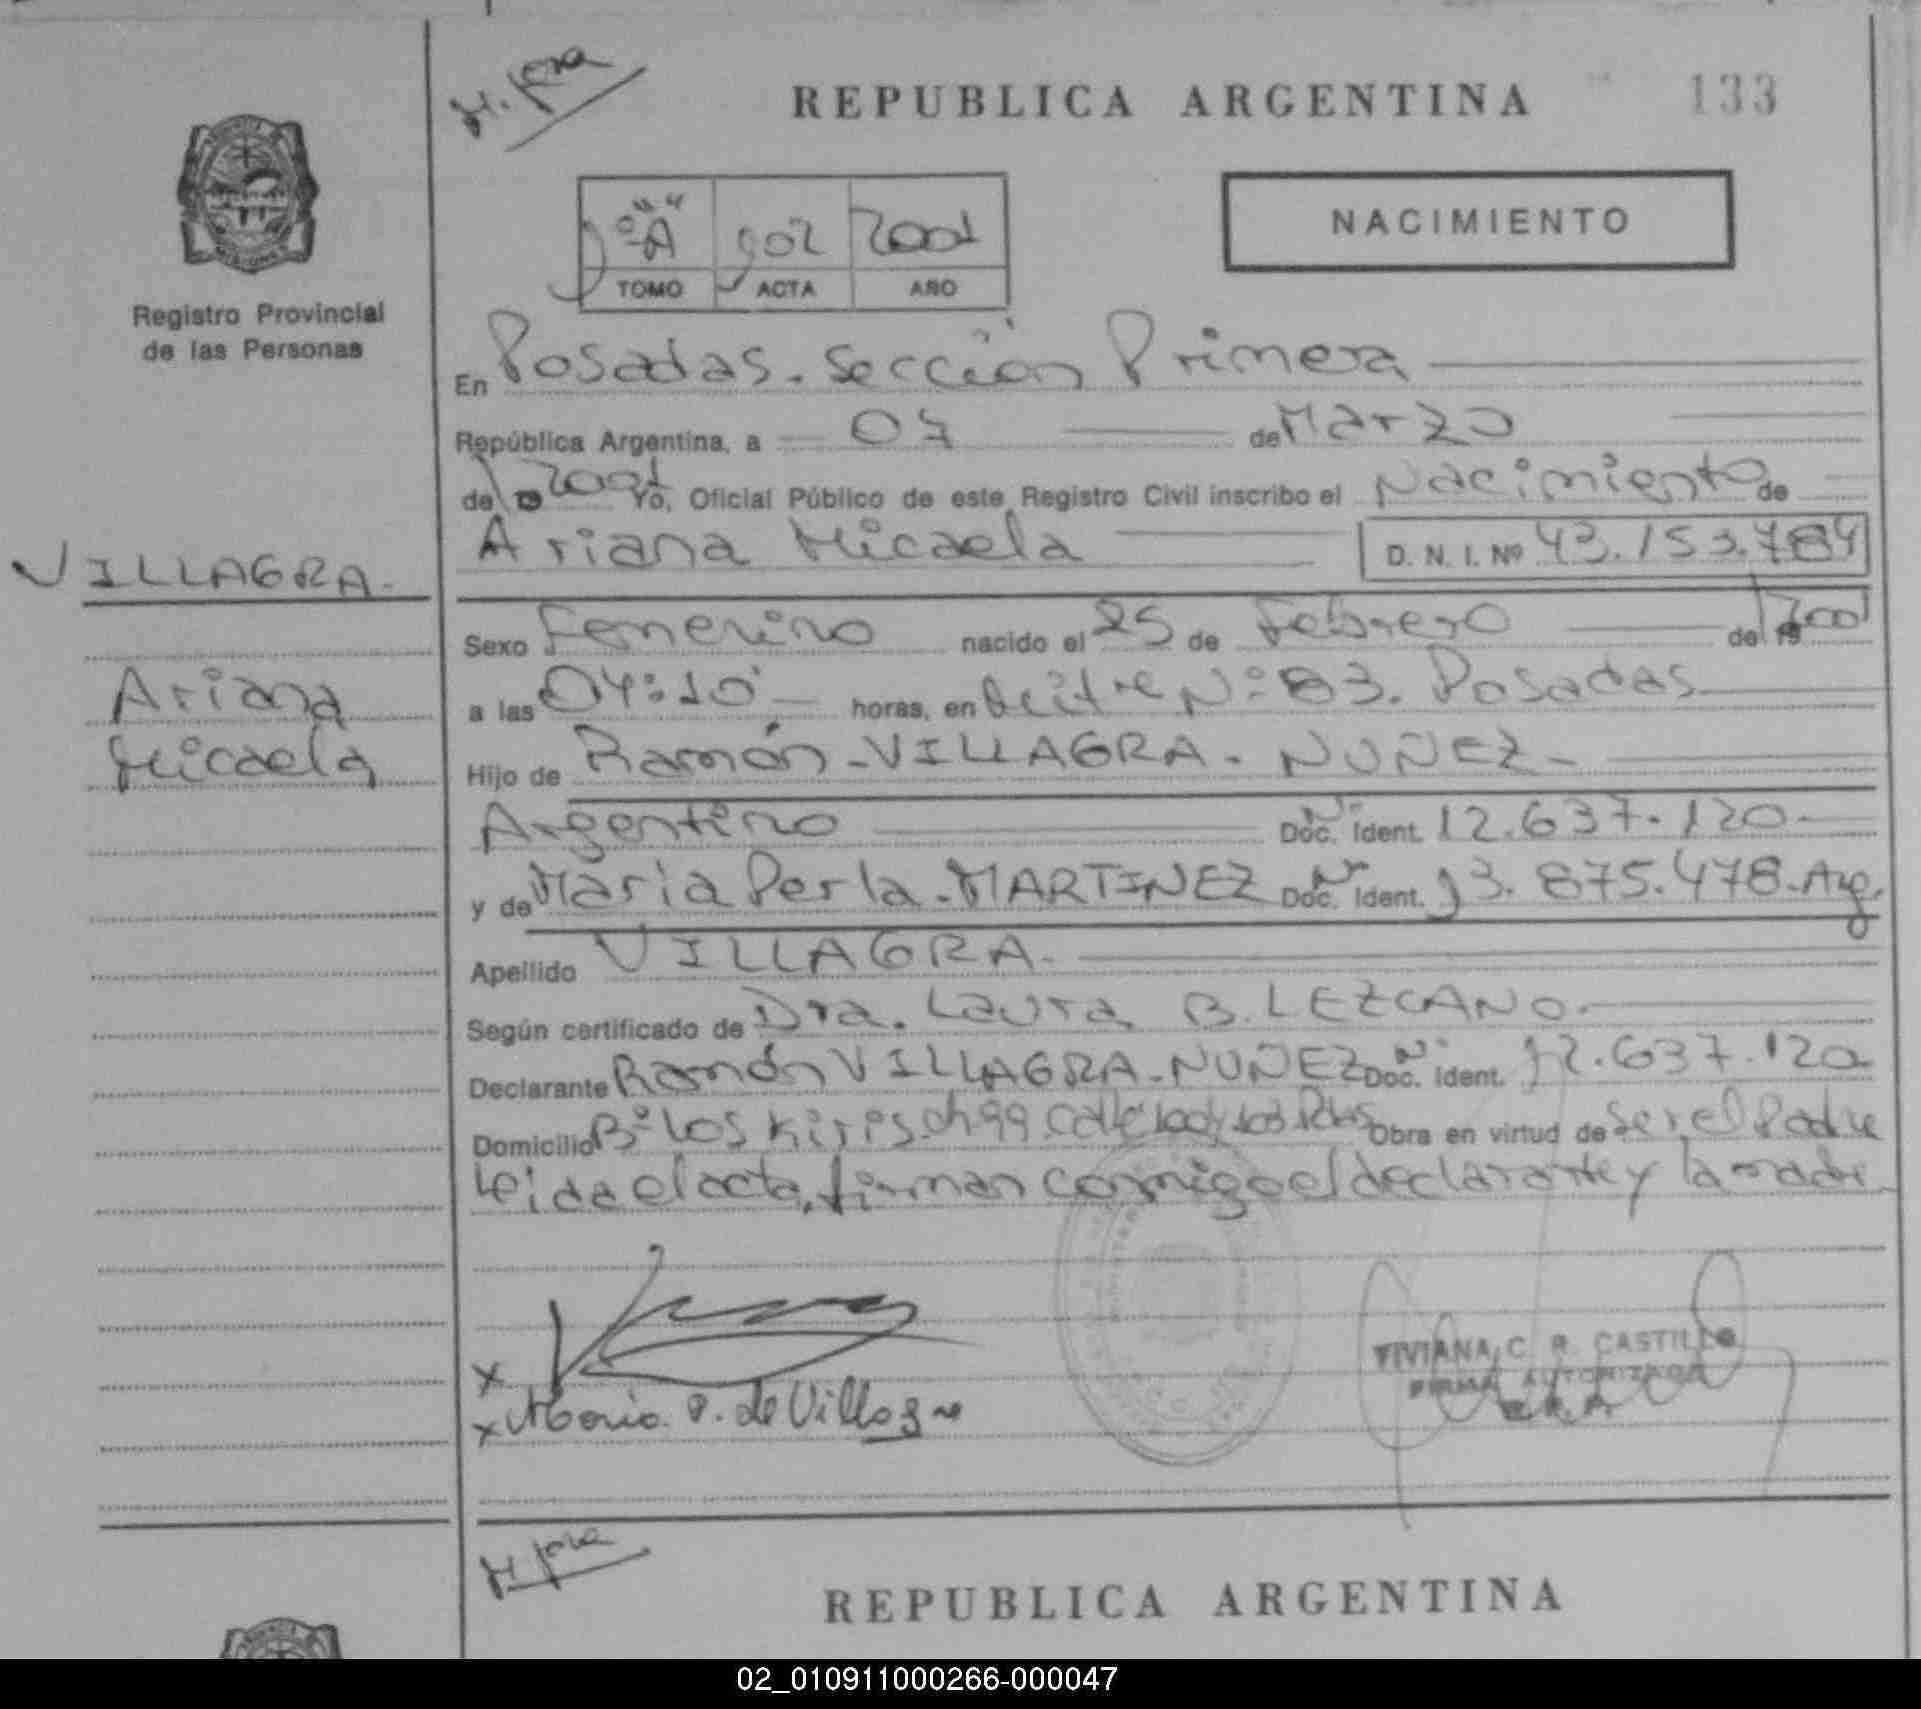 REPUBLICA ARGENTINA 133
"A" 902 2001
TOMO ACTA AÑO
NACIMIENTO
Registro Provincial
de las Personas
En Posadas. Sección Primera
República Argentina, a 07 de Marzo
de 2001 Yo, Oficial Público de este Registro Civil inscribo el Nacimiento de
Ariana Micaela D. N. I. Nº 43.153.784
VILLAGRA.
Ariana
Micaela
Sexo Femenino nacido el 25 de Febrero de 2001
a las 04:10 horas, en Nº 83. Posadas
Hijo de Ramón - VILLAGRA - NUÑEZ -
Argentino Doc. Ident. 12.637.120
y de María Perla - MARTINEZ Doc. Ident. 13.875.478 - Arg.
Apellido VILLAGRA.
Según certificado de Dra. Laura B. LEZCANO.
Declarante Ramón VILLAGRA - NUÑEZ Doc. Ident. 12.637.120
Domicilio Bº Los Kiris Obra en virtud de Ser el Padre
Leida el acta, firman conmigo el declarante y la madre
x
x Maria P. de Villagra
VIVIANA C. R. CASTILLO
FIRMA AUTORIZADA
REPUBLICA ARGENTINA
02_010911000266-000047